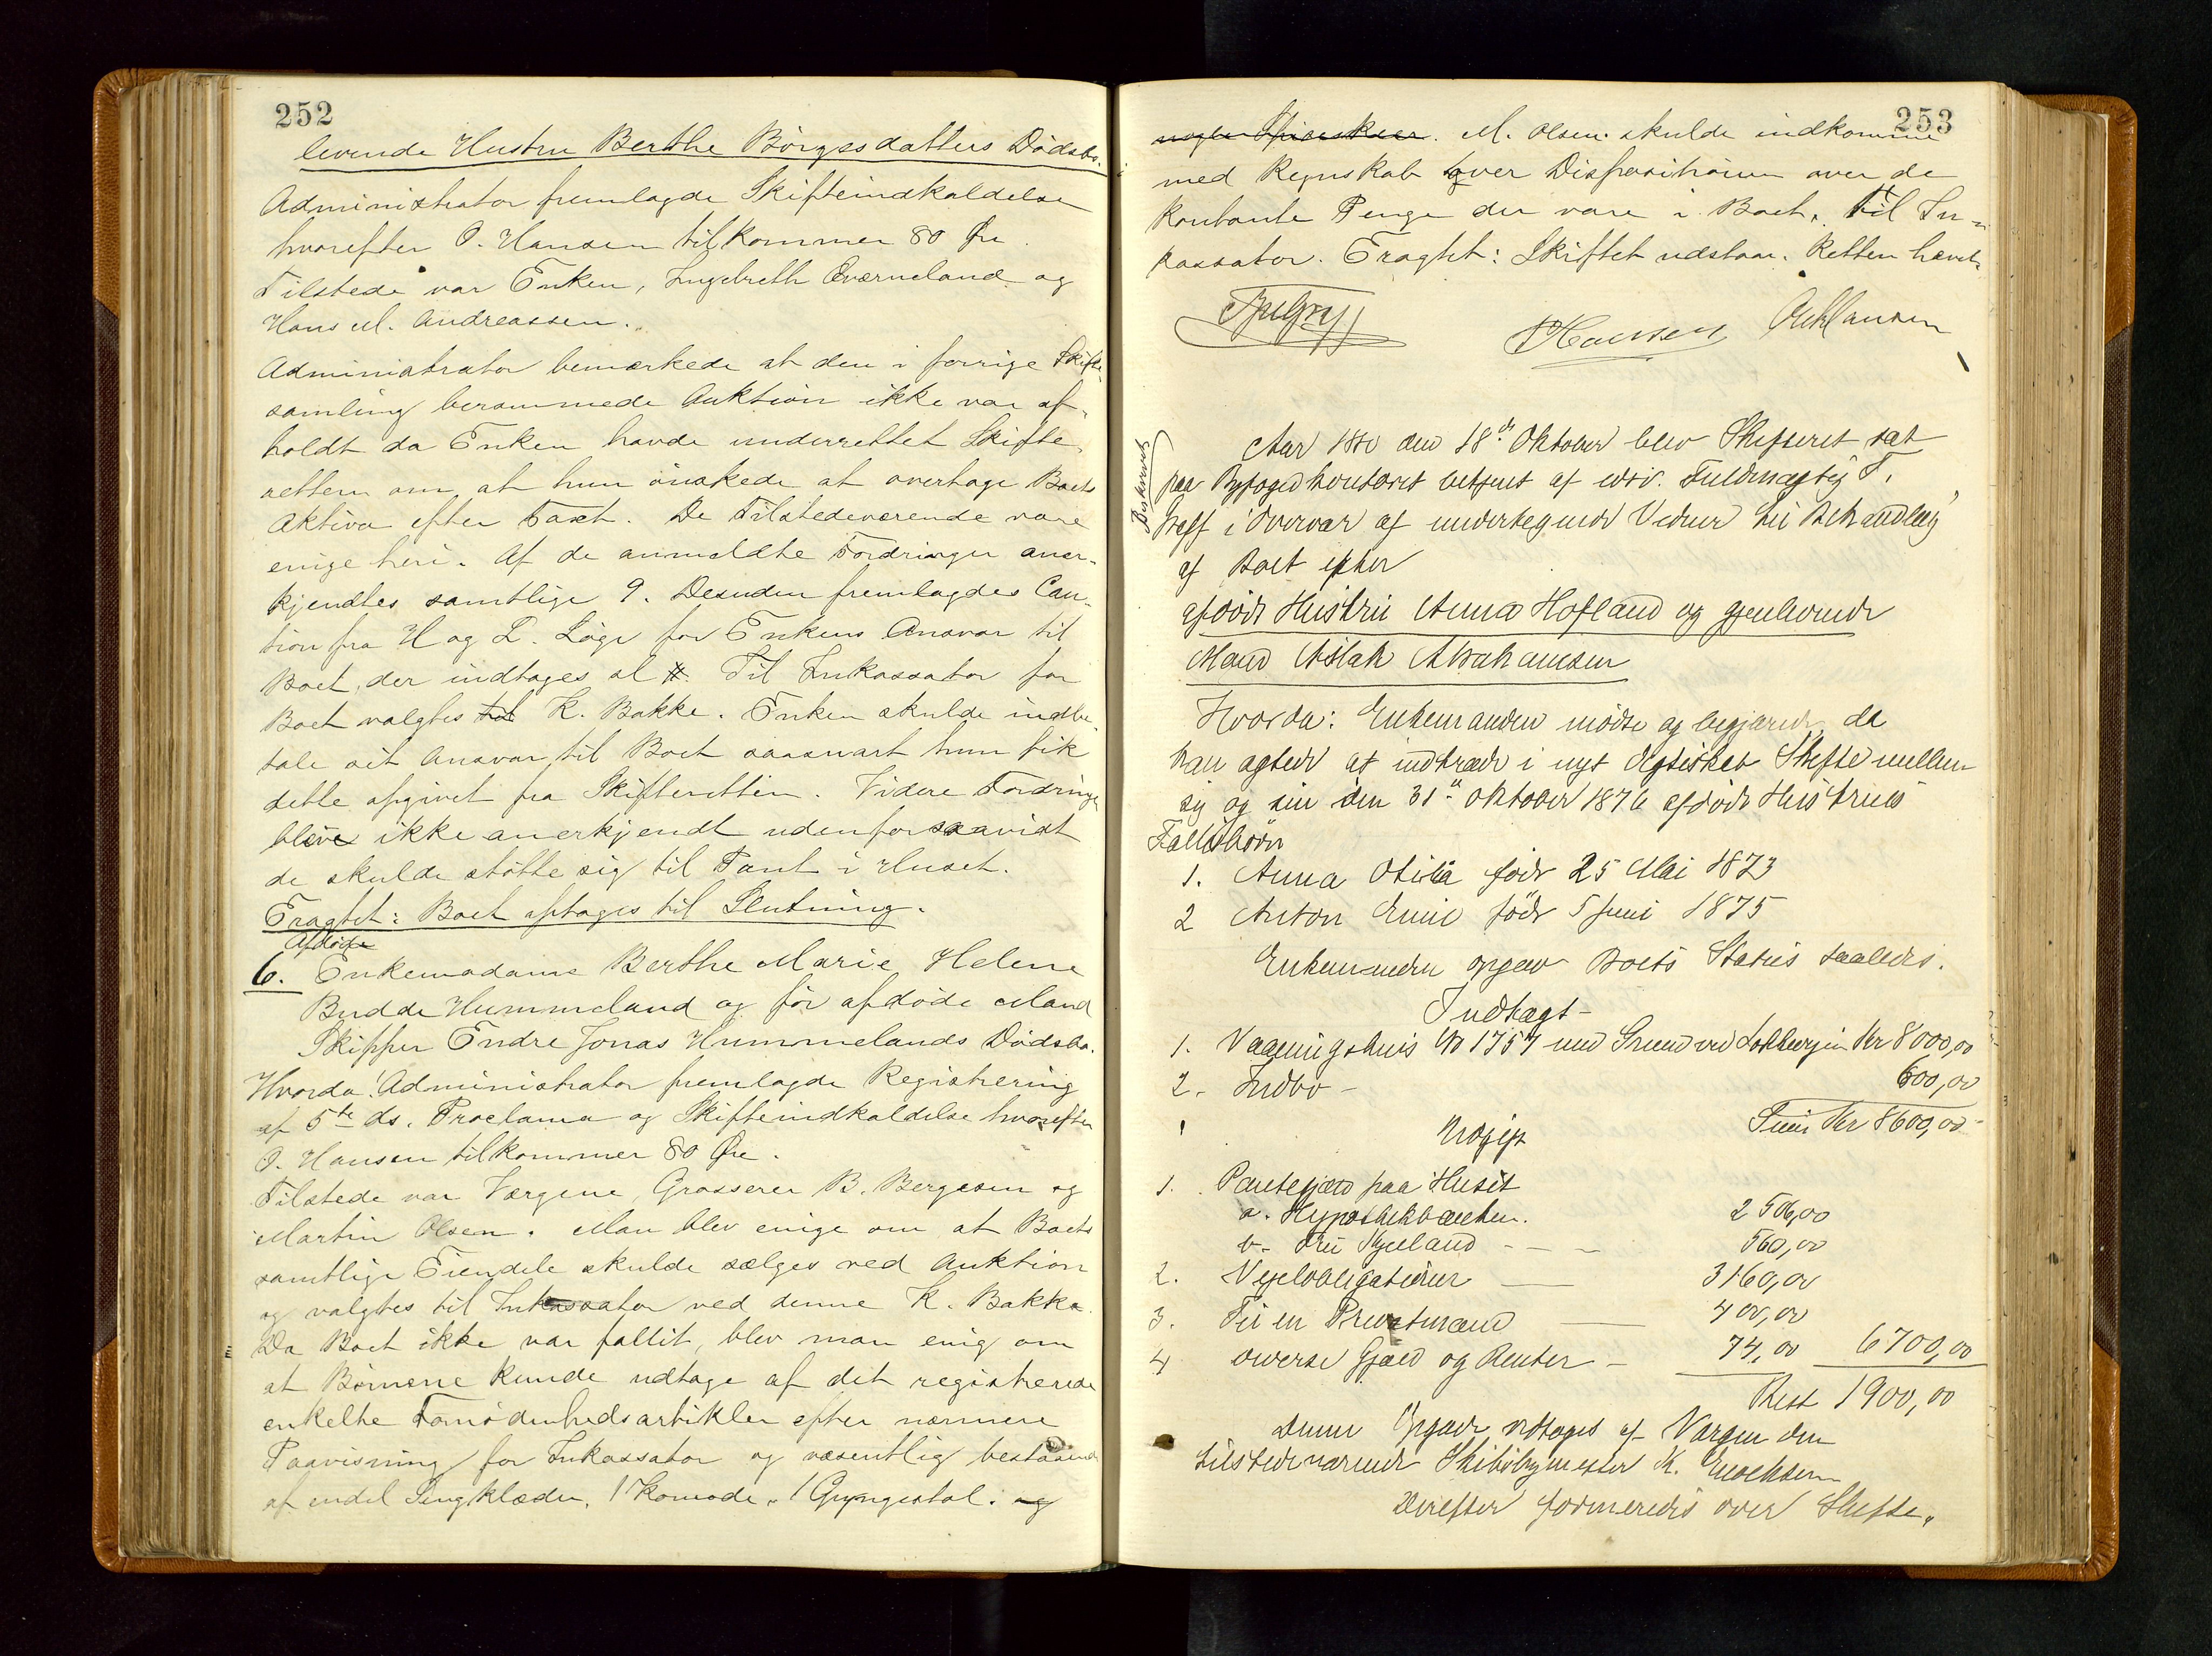 252
levende Hustru Berthe Börgesdatters Dödsbo.
Administrator fremlagde Skifteindkaldelse
hvorefter O. Hansen tilkommer 80 Øre.
Tilstede var Enken, Ingebreth Qværneland og
Hans M. Andreassen.
Administrator bemærkede at den i forrige Skifte-
samling berammede Auktion ikke var af-
holdt da Enken havde underrettet Skifte-
retten om at hun önskede at overtage Boets
Aktiva efter Taxt. De Tilstedeværende vare
enige heri. Af de anmeldte Fordringer aner-
kjendtes samtlige 9. Desuden fremlagdes Cau-
tion fra H og L. Löge for Enkens Ansvar til
Boet, der indtages al #. Til Inkassator for
Boet valgtes til K. Bakke. Enken skulde indbe-
tale sit Ansvar til Boet saasnart hun fik
dette opgivet fra Skifteretten. Videre Fordringer
bleve ikke anerkjendt udenfor saavidt
de skulde stötte sig til Pant i Huset.
Eragtet: Boet optages til Slutning.
Afdöde
6. Enkemadame Berthe Marie Helene
Budde Hummeland og för afdöde Mand
Skipper Endre Jonas Hummelands Dödsbo.
Hvorda! Administrator fremlagde Registrering
af 5te ds. Proclama og Skifteindkaldelse hvorefter
O. Hansen tilkommer 80 Øre.
Tilstede var Værgerne, Grosserer B. Bergesen og
Martin Olsen. Man blev enige om at Boets
samtlige Eiendele skulde sælges ved Auktion
og valgtes til Inkassator ved denne K. Bakke.
Da Boet ikke var fallit, blev man enig om
at Börnene kunde udtage af det registrerede
enkelte Fornödenhedsartikler efter nærmere
Paavisning for Inkassator og væsentlig bestaaende
af endel Sengklæder, 1 Komode, 1 Gyngestol. og
253
nogle Spiseskeer. M. Olsen skulde indkomme
med Regnskab over Dispositionen over de
kontante Penge der vare i Boet. til In-
kassator. Eragtet: Skiftet udstaar. Retten hævet.
Hansen
Beskrevet
Aar 1880 den 18de Oktober blev Skifteret sat
paa Byfogedkontoret betjent af edsv. Fuldmægtig F.
i Overvær af undertegnede Vidner til Behandling
af Boet efter
afdöde Hustru Anna Hofland og gjenlevende
Mand Aslak Abrahamsen
Hvorda: Enkemanden mödte og begjærede, da
han agtede at indtræde i nyt Ægteskab Skifte mellem
sig og sin den 31te Oktober 1876 afdöde Hustrues
Fællesbörn
1. Anna Otilia född 25 Mai 1873
2 Anton Emil född 5 Juni 1875
Enkemanden opgav Boets Status saaledes.
Indtægt-
1. Vaaningshus No 1757 med Grund ved Kr 8000,00
2. Indbo - 600,00
Sum Kr 8600,00
Udgift
1. Pantegjæld paa Huset
a. Hypothekbanken. 2506,00
b. Fru Kjelland - - - 560,00
2. Vexelobligationer 3160,00
3. Til en Privatmand 400,00
4 diverse Gjæld og Renter - 74,00 6700,00
Rest 1900,00
Denne Opgave vedtoges af Værgen den
tilstedeværende Skibsbygmester K. Enochsen
Derefter formeredes over Skifte.